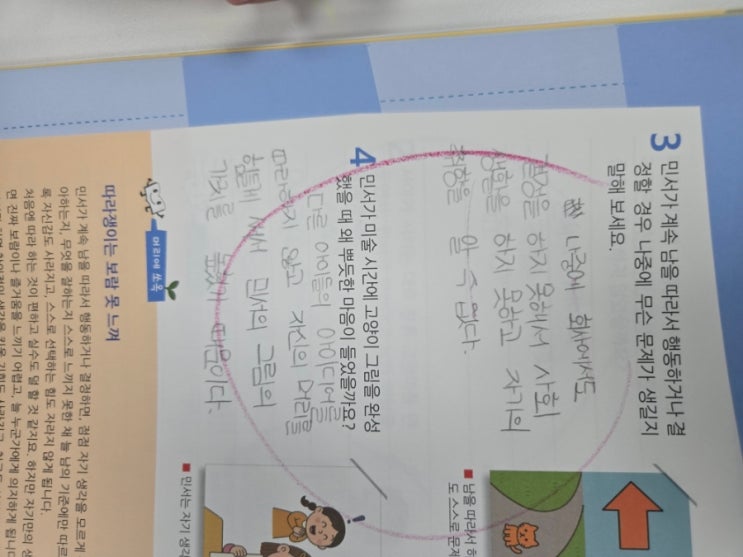 3 민서가 계속 남을 따라서 행동하거나 결
정할 경우 나중에 무슨 문제가 생길지
말해 보세요.
나중에 회사에서도
결정을 하지 못해서 사회
생활을 하지 못하고 자기의
취향을 알 수 없다.
4 민서가 미술 시간에 고양이 그림을 완성
했을 때 왜 뿌듯한 마음이 들었을까요?
다른 아이들의 아이디어를
따라하지 않고 자신의 머리를
힘들게 써서 민서의 그림의
가치를 때문이다.
■ 남을 따라서 하
도 스스로 문저
■ 민서는 자기 생각
머리에 쏘옥
따라쟁이는 보람 못 느껴
민서가 계속 남을 따라서 행동하거나 결정하면, 점점 자기 생각을 모르게
아하는지, 무엇을 잘하는지 스스로 느끼지 못한 채 늘 남의 기준에만 따르
록 자신감도 사라지고, 스스로 선택하는 힘도 자라지 않게 됩니다.
처음엔 따라 하는 것이 편하고 실수도 덜 할 것 같지요. 하지만 자기만의 생
면 진짜 보람이나 즐거움을 느끼기 어렵고, 늘 누군가에게 의지하게 됩니다